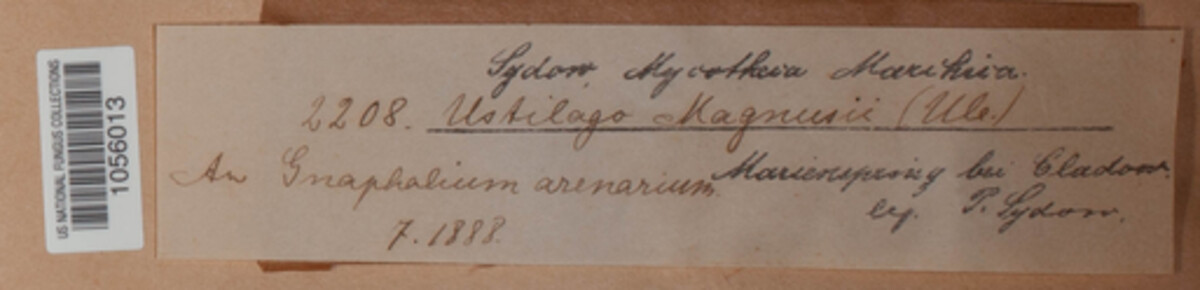 US NATIONAL FUNGUS COLLECTIONS
1056013
Sydow, Mycotheca Marchica.
2208. Ustilago Magnusii (Ule.)
An Gnaphalium arenarium. Marienspring bei Cladow.
leg. P. Sydow.
7. 1888.